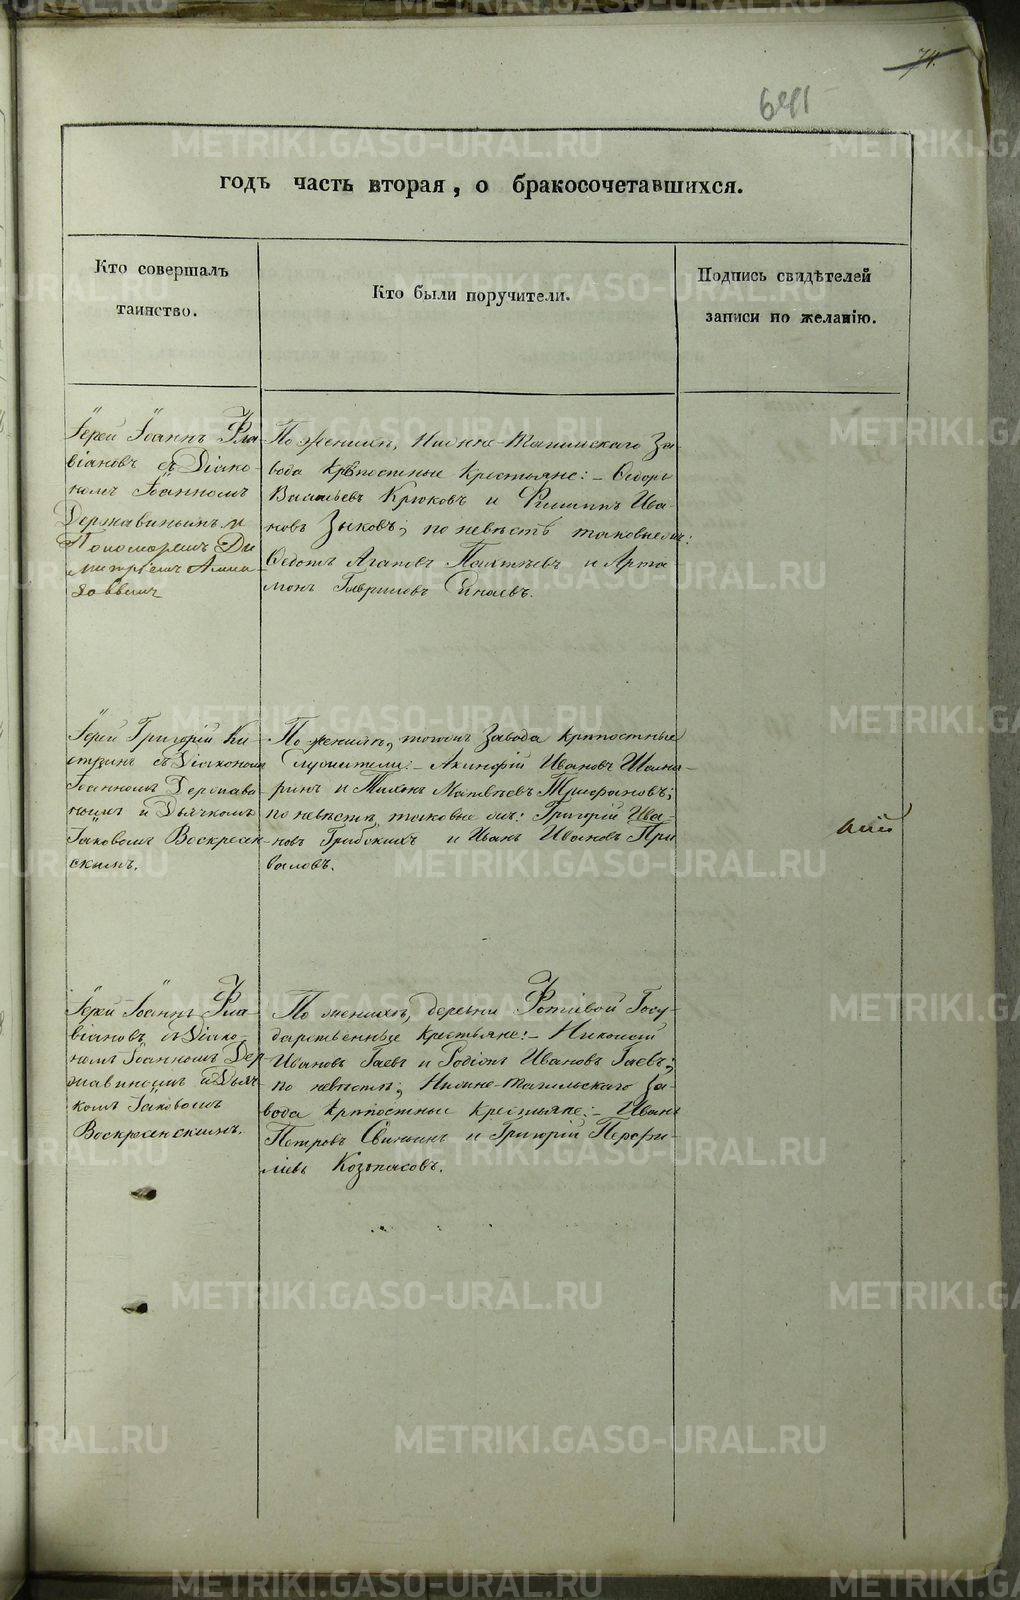 74.
641
годъ часть вторая, о бракосочетавшихся.
Кто совершалъ
таинство.
Кто были поручители.
Подпись свидѣтелей
записи по желанію.
Іерей Іоаннъ Фла-
віановъ съ Діако-
номъ Іоанномъ
Державинымъ и
Пономаремъ Ди
митріемъ
По женихѣ, Нижне-Тагильскаго За-
вода крѣпостные крестьяне:- Ѳедоръ
Васильевъ Крюковъ и Филиппъ Ива-
новъ Зыковъ; по невѣстѣ таковые же:
Ѳедотъ Агаповъ и Арта-
монъ Гавриловъ
Іерей Григорій
съ Діакономъ
Іоанномъ Держави-
нымъ и Дьячкомъ
Іаковомъ Воскресен-
скимъ.
По женихѣ, тогожъ Завода крѣпостные
служители:- Акинфій Ивановъ
и Тихонъ Матвѣевъ Трифановъ;
по невѣстѣ, таковые же: Григорій Ива-
новъ и Иванъ Ивановъ При
валовъ.
Іерей Іоаннъ Фла-
віановъ съ Діако-
номъ Іоанномъ Дер-
жавинымъ и Дьяч-
комъ Іаковомъ
Воскресенскимъ.
По женихѣ, деревни Фотѣевой Госу-
дарственные крестьяне:- Николай
Ивановъ Гаевъ и Родіонъ Ивановъ Гаевъ;
по невѣстѣ, Нижне-Тагильскаго За-
вода крѣпостные крестьяне:- Иванъ
Петровъ и Григорій Перфи-
ліевъ Козопасовъ.
METRIKI.GASO-URAL.RU